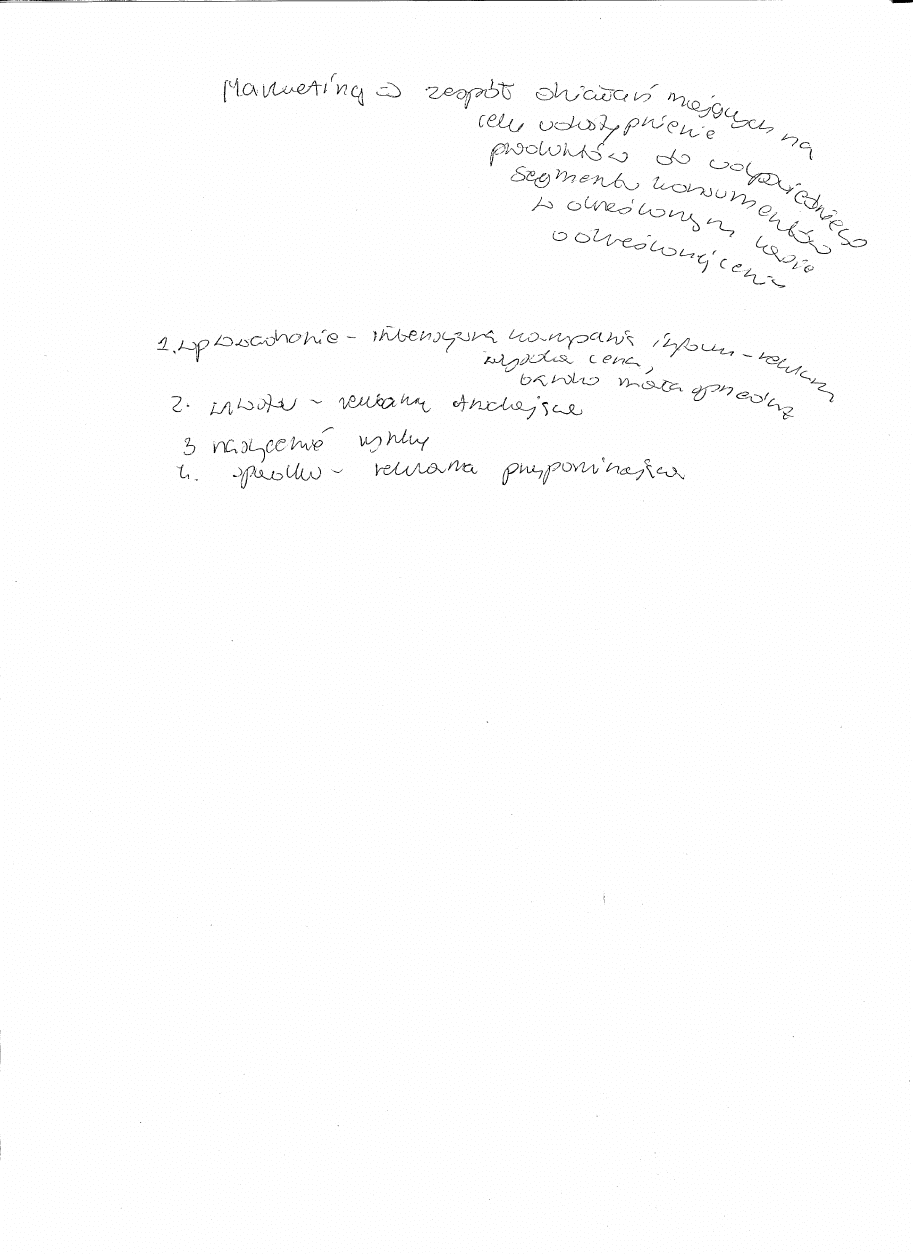 Marketing → zespół działań mających na
celu udostępnienie
produktów do odpowiedniego
segmentu konsumentów
w określonym czasie
o określonej cenie
1. wprowadzenie – intensywna kampania inform - reklam
wysoka cena,
bardzo mała sprzedaż
2. wzrostu – reklama
3 nasycenie rynku
4. spadku – reklama przypominająca